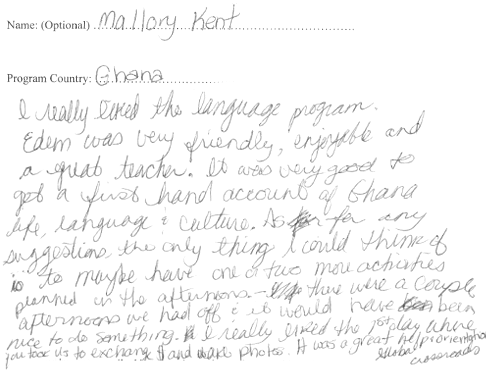 Name: (Optional) Mallory Kent
Program Country: Ghana
I really liked the language program.
Edem was very friendly, enjoyable and
a great teacher. It was very good to
get a first hand account of Ghana
life, language & culture. As for any
suggestions, the only thing I could think of
is to maybe have one or two more activities
planned in the afternoons. - there were a couple
afternoons we had off & it would have been
nice to do something. I really liked the 1st day where
you took us to exchange $ and make photos. It was a great help orienting
Global
crossroads